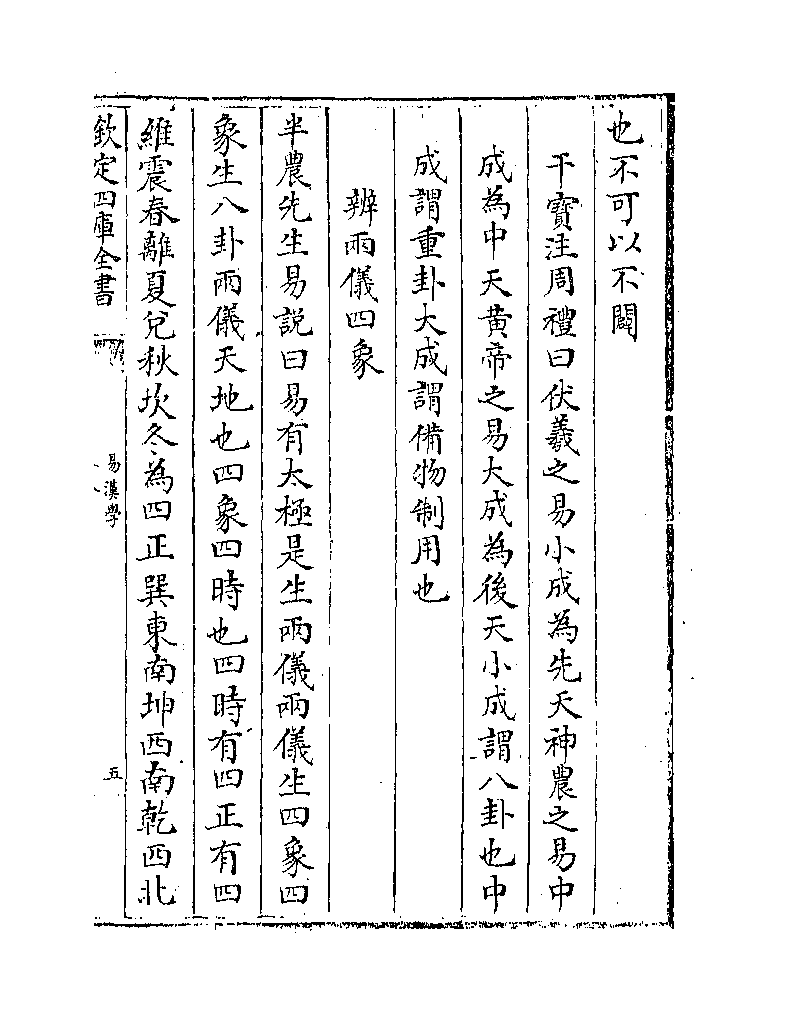 也不可以不闢
干寳注周禮曰伏羲之易小成為先天神農之易中
成為中天黄帝之易大成為後天小成謂八卦也中
成謂重卦大成謂備物制用也
辨兩儀四象
半農先生易説曰易有太極是生兩儀兩儀生四象四
象生八卦兩儀天地也四象四時也四時有四正有四
維震春離夏兌秋坎冬為四正巽東南坤西南乾西北
欽定四庫全書
易漢學
五